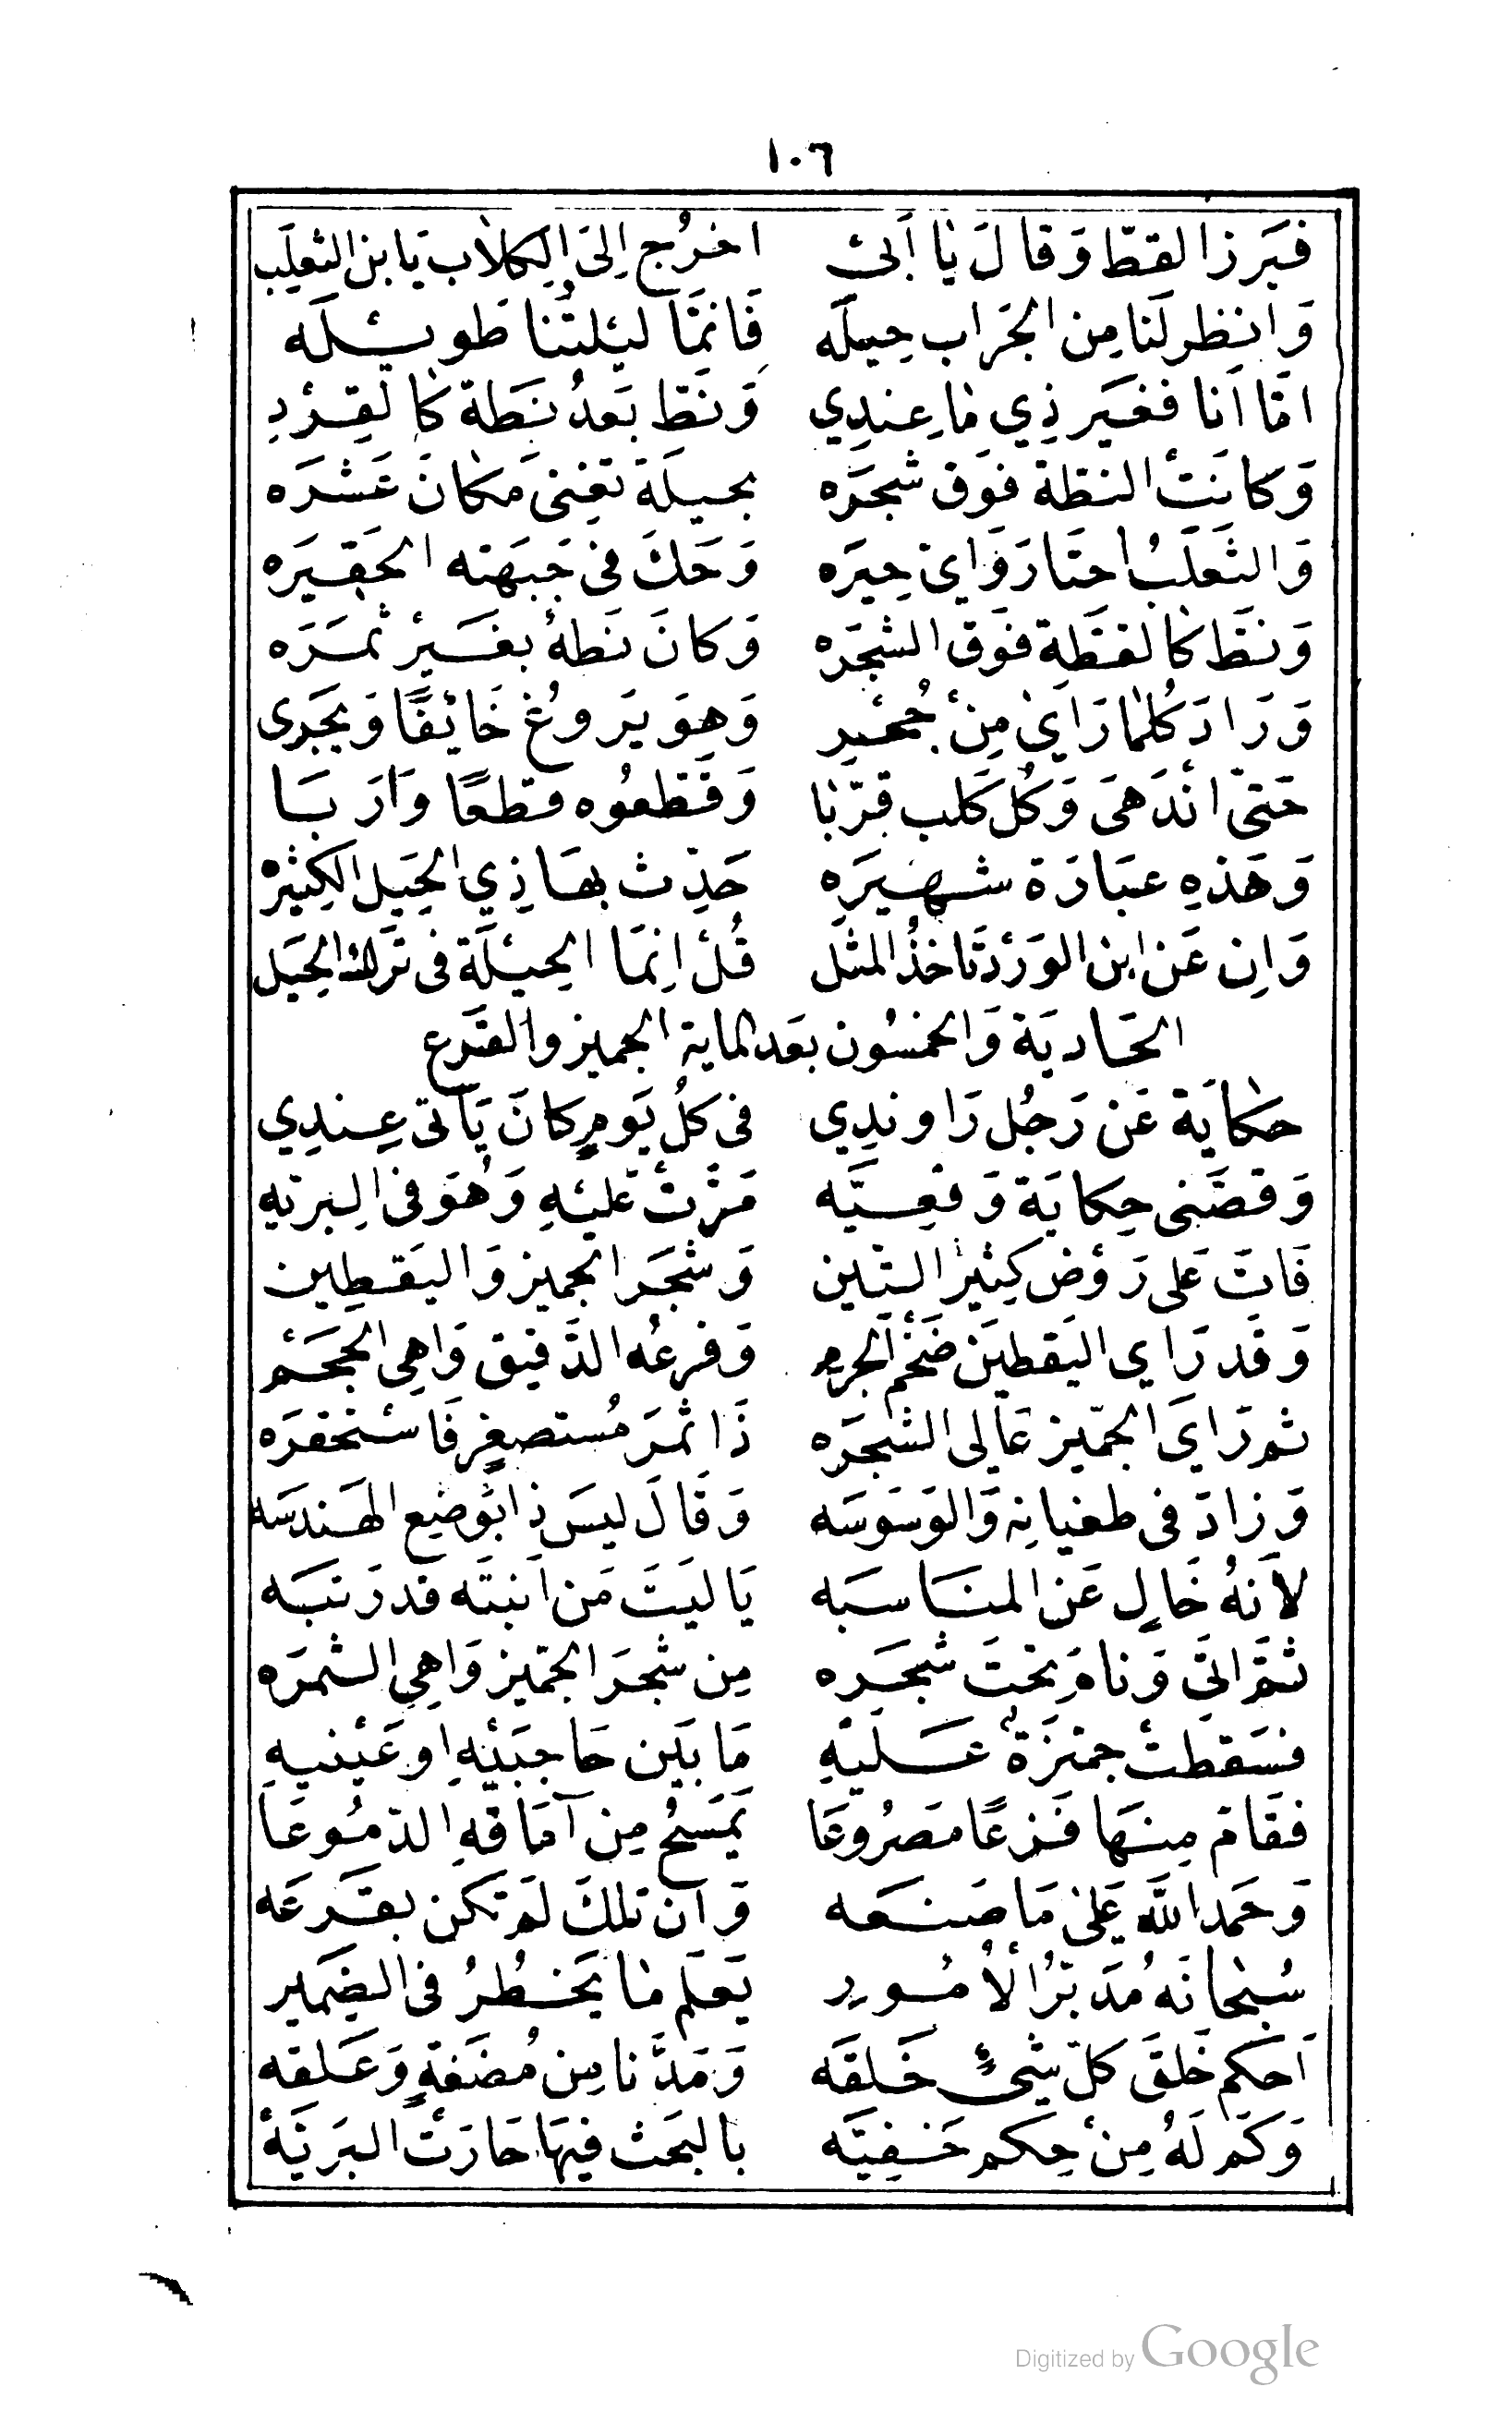 ١٠٦
فَبَرز القطّ وَقالَ يا أَبىْ اخرُج اِلىَ الكِلاب يَا بن الثعلَب
وَانظر لَنا مِن الجرَاب حِيلَه فَانمَّا ليْلتُنا طَويْله
امّا اَنا فغَير ذِي مٰا عِندِي وَنطّ بَعدُ نَطة كٰالقِرْدِ
وَكانَتْ النطّة فوَق شجرَه بحيلَة تغنى مَكانَ عَشرَه
وَالثعلَبُ احتَار وَاىَ حِيرَه وَحَكَ فى جَبهَته الحَقيرَه
وَنطّ كٰالقطَةِ فوَق الشجَره وَكانَ نَطهُ بغَيرْ ثمرَه
وَرَادَ كُلمٰا رَاىٰ مِنْ جُحْر وَهوَ يَروغُ خَائفًا وَيجَرى
حَتىّ انْدَهىَ وَكُل كَلب قرّبٰا وَقَطعُوه قطعًا وَارَبَا
وَهَذهِ عبَارَة شهيَرِه حَدّث بهَا ذِي الحِيَل الكِثيرْه
وَاِن عَن ابن الوَرْدَتَاخذُ المثَل قُلْ اِنمَا الحِيْلَة فى تَرك الحِيَل
الحَاديَة وَالخمسُون بعَد الماية الجميز والقَرع
حكٰايَة عَن رَجُل رَاوندِي فى كلُ يَومٍ كانَ يَأتى عِندِي
وَقصَّنى حِكايَة وَقعِيَّه مَرَّتْ عَليْهِ وَهُوَ فى البريّه
فَاتَ عَلى رَوْض كِثير التّين وَشجَر الجميز وَاليَقطِين
وَقَد رَاي اليَقطيَن ضَخْم الجرم وَفرعُه الدَّقيق وَاهِى الحجَمْ
ثم رَايَ الجمّيز عَالى الشجَره ذَا ثمرَ مُستصغرٍ فَاسْتحقرَه
وَزادَ فى طغيانِه وَالوَسوَسَه وَقَالَ ليسَ ذا بوضع الهَندسَه
لاَنهُ خَالٍ عَن المنَاسبَه يَا ليَتَ مَن اَنبتَه قد رَتبَه
ثمَّ اتىَ وَنامَ تحتَ شجَره مِن شجرَ الجمّيز وَاهِى الثمرَه
فسَقطتْ جمّيزَةٌ عَليْهِ مَا بَين حَاجبَيْهِ او عَيْنيهِ
فقَامَ مِنهَا فَزعًا مَصرُوعَا يَمسَحُ مِن آمَاقهِ الدّمُوعَا
وَحمَد اللّٰه عَلىٰ مَا صَنعَه وَان تلكَ لَم تكن بقَرعَه
سُبحٰانَهُ مُدَبّرُ الأمُورِ يَعلَم مٰا يَخطُرُ فى الضمير
اَحكم خَلقَ كلّ شيْءٍ خَلقَه وَمَدَّنا مِن مُضغَةٍ وَعَلقه
وَكمَ لَهُ مِنْ حِكم خَفِيَّه بالبَحث فيهَا حَارَتْ البَريَّهْ
Digitized by Google